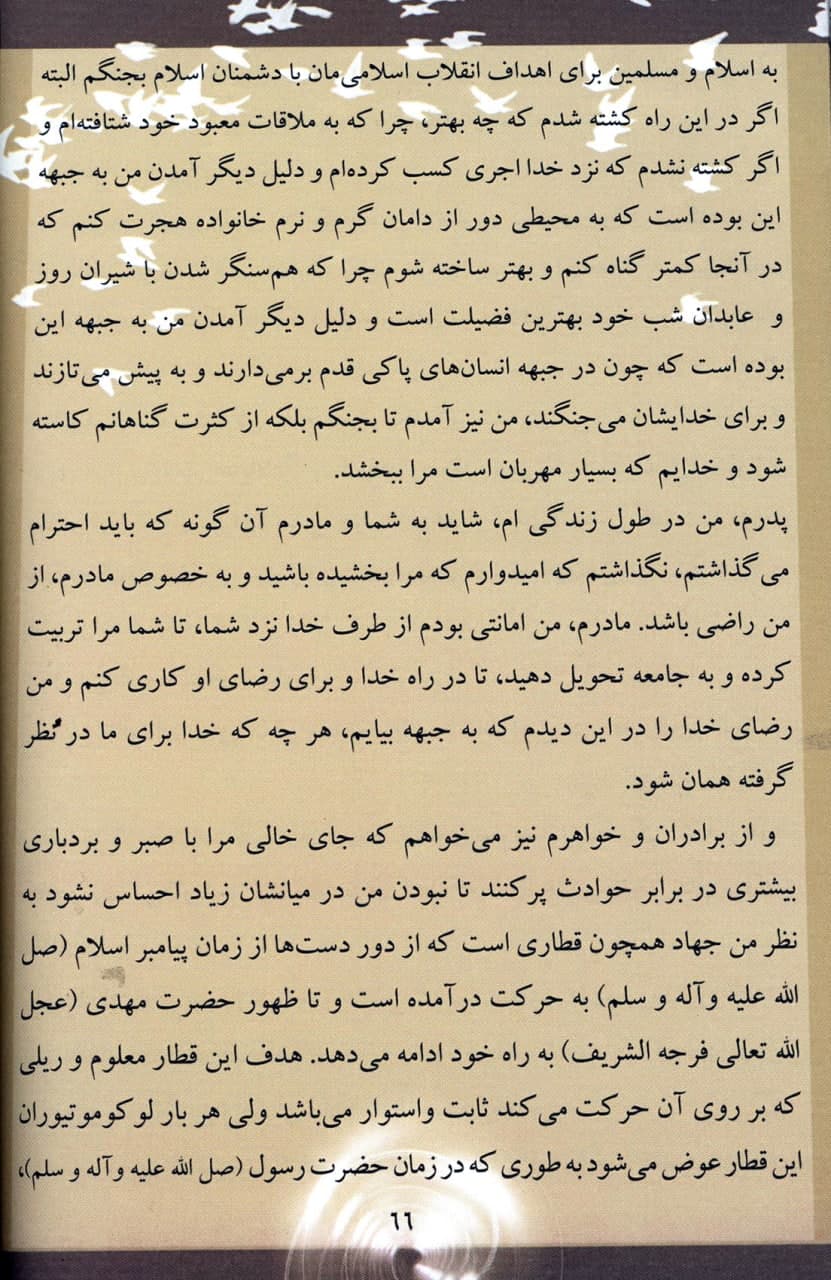 به اسلام و مسلمین برای اهداف انقلاب اسلامی‌مان با دشمنان اسلام بجنگم البته
اگر در این راه کشته شدم که چه بهتر، چرا که به ملاقات معبود خود شتافته‌ام و
اگر کشته نشدم که نزد خدا اجری کسب کرده‌ام و دلیل دیگر آمدن من به جبهه
این بوده است که به محیطی دور از دامان گرم و نرم خانواده هجرت کنم که
در آنجا کمتر گناه کنم و بهتر ساخته شوم چرا که هم‌سنگر شدن با شیران روز
و عابدان شب خود بهترین فضیلت است و دلیل دیگر آمدن من به جبهه این
بوده است که چون در جبهه انسان‌های پاکی قدم برمی‌دارند و به پیش می‌تازند
و برای خدایشان می‌جنگند، من نیز آمدم تا بجنگم بلکه از کثرت گناهانم کاسته
شود و خدایم که بسیار مهربان است مرا ببخشد.
پدرم، من در طول زندگی ام، شاید به شما و مادرم آن گونه که باید احترام
می‌گذاشتم، نگذاشتم که امیدوارم که مرا بخشیده باشید و به خصوص مادرم، از
من راضی باشد. مادرم، من امانتی بودم از طرف خدا نزد شما، تا شما مرا تربیت
کرده و به جامعه تحویل دهید، تا در راه خدا و برای رضای او کاری کنم و من
رضای خدا را در این دیدم که به جبهه بیایم، هر چه که خدا برای ما در نظر
گرفته همان شود.
و از برادران و خواهرم نیز می‌خواهم که جای خالی مرا با صبر و بردباری
بیشتری در برابر حوادث پرکنند تا نبودن من در میانشان زیاد احساس نشود به
نظر من جهاد همچون قطاری است که از دور دست‌ها از زمان پیامبر اسلام (صل
الله علیه وآله و سلم) به حرکت درآمده است و تا ظهور حضرت مهدی (عجل
الله تعالی فرجه الشریف) به راه خود ادامه می‌دهد. هدف این قطار معلوم و ریلی
که بر روی آن حرکت می‌کند ثابت واستوار می‌باشد ولی هر بار لوکوموتیوران
این قطار عوض می‌شود به طوری که در زمان حضرت رسول (صل الله علیه وآله و سلم)،
٦٦